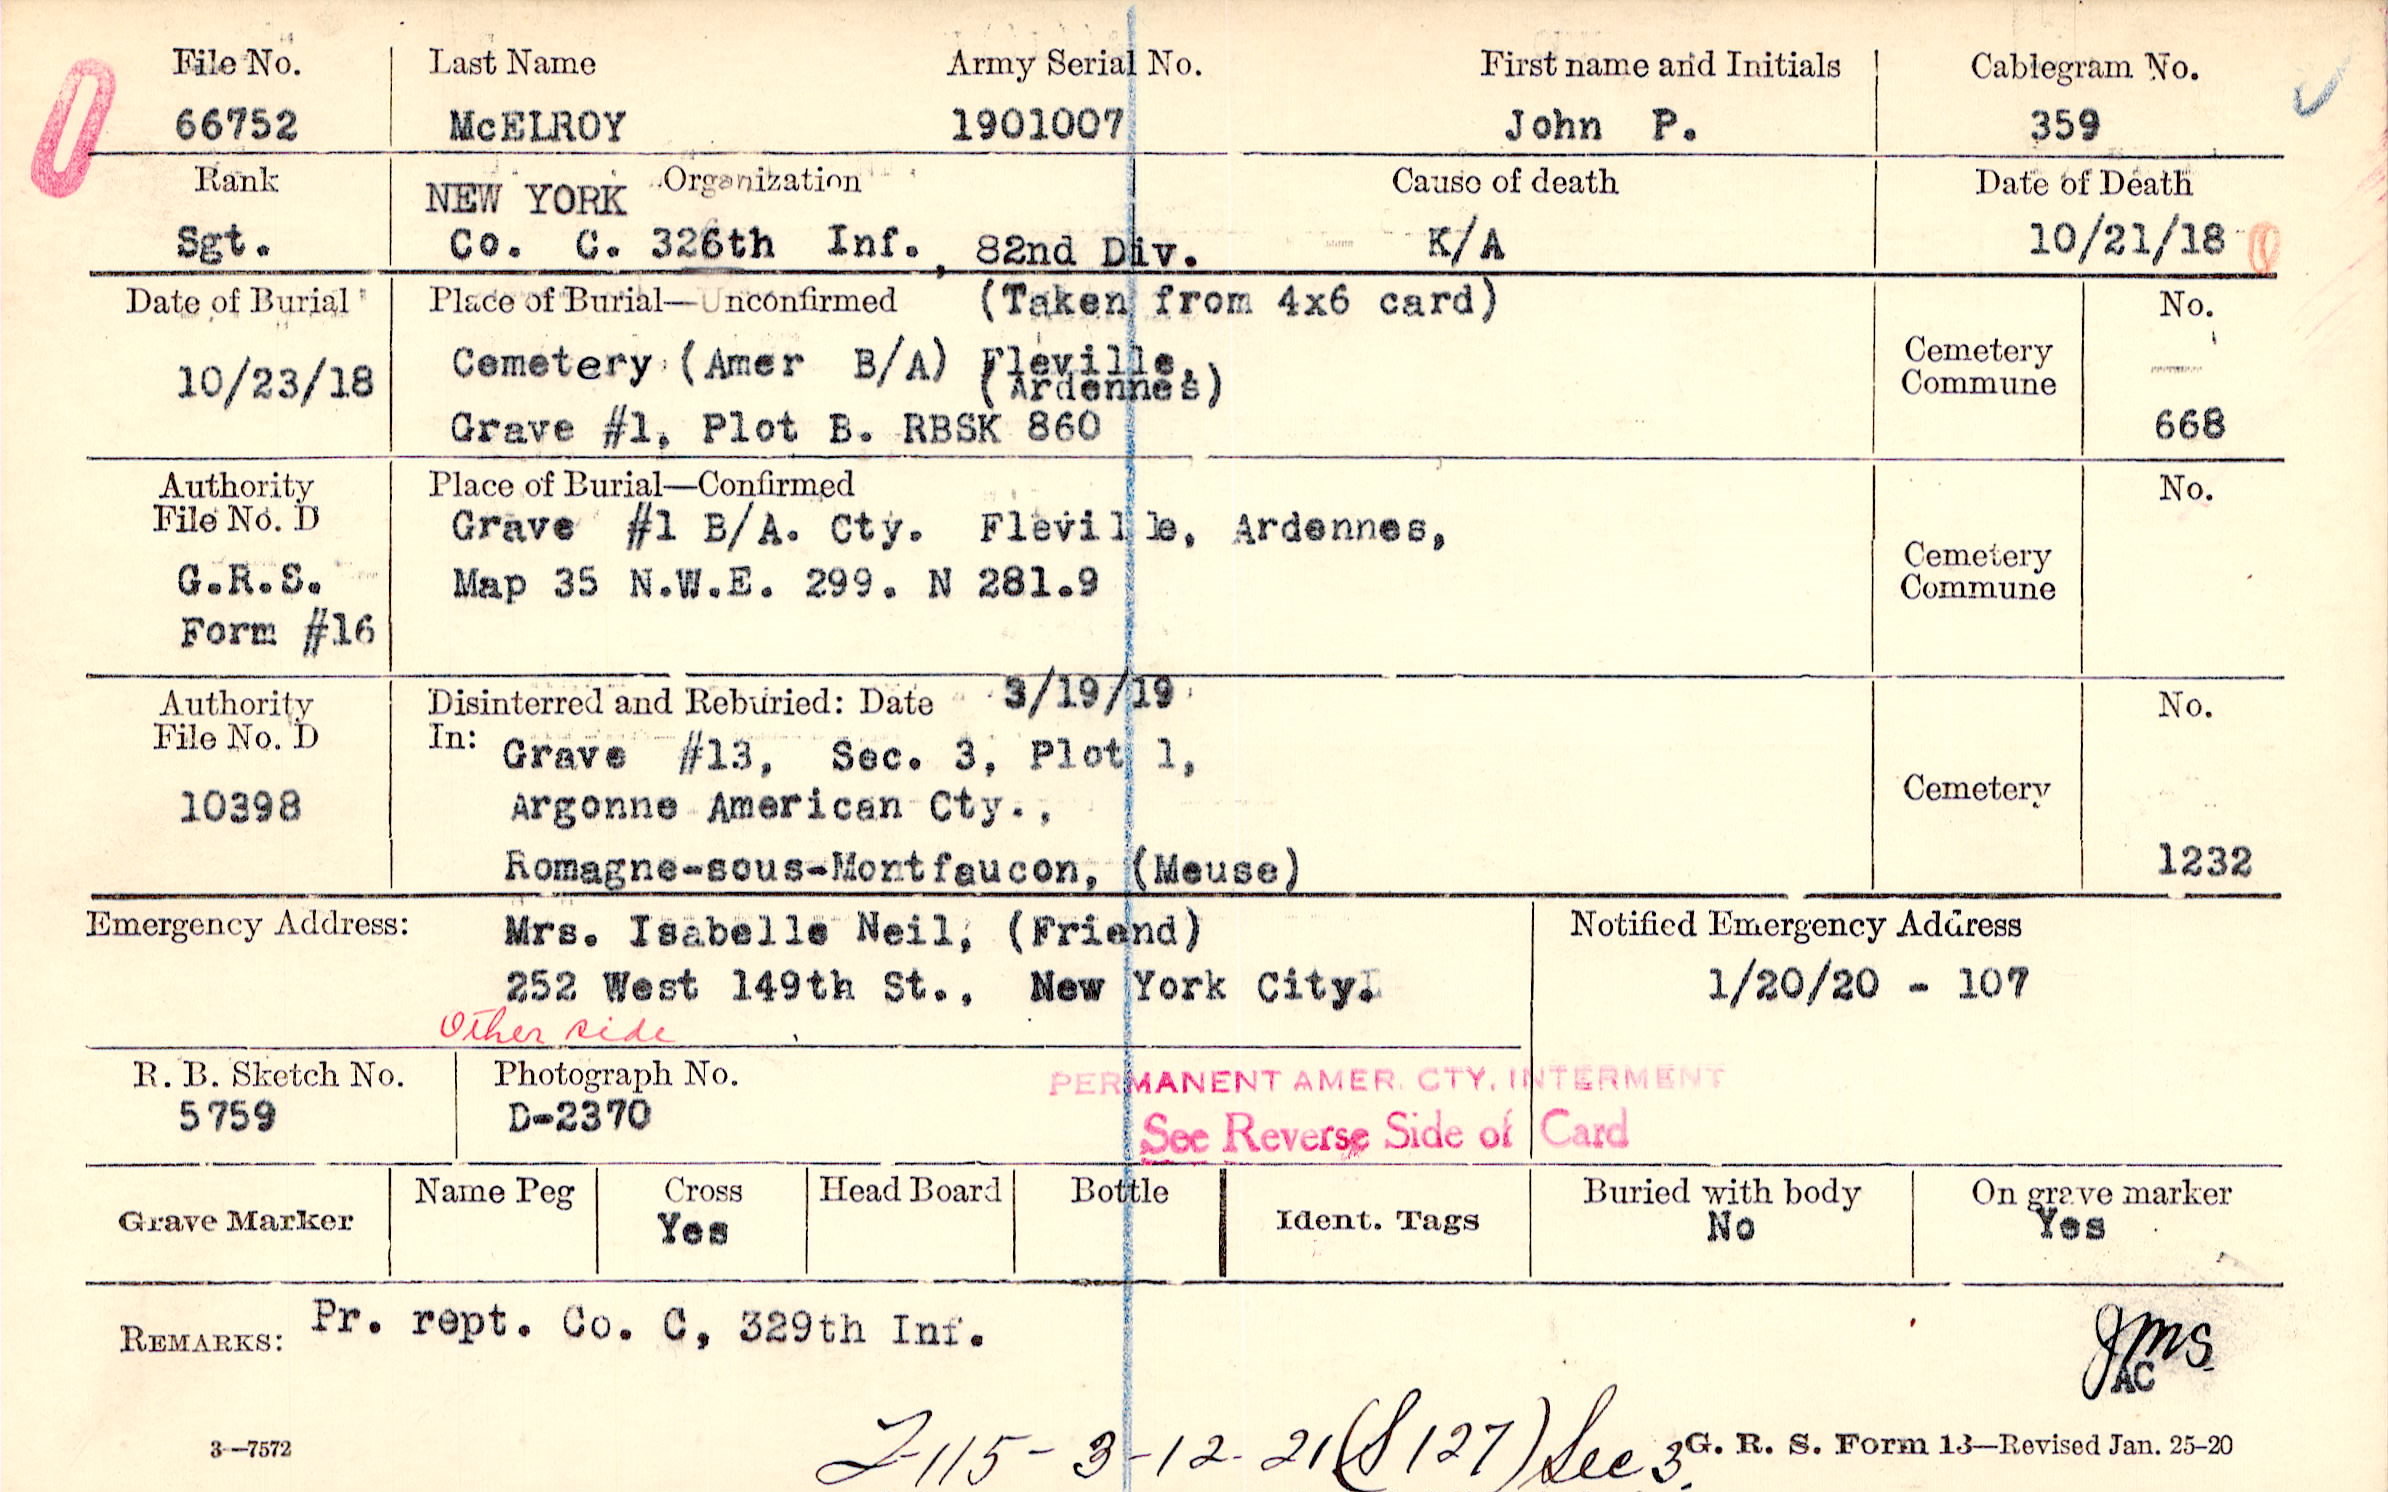 File No. Last Name Army Serial No. First name and Initials Cablegram No.
66752 McELROY 1901007 John P. 359
Rank Organization Cause of death Date of Death
NEW YORK
Sgt. Co. C. 326th Inf., 82nd Div. K/A 10/21/18
Date of Burial Place of Burial—Unconfirmed (Taken from 4x6 card) No.
Cemetery (Amer B/A) Fleville, Cemetery
10/23/18 (Ardennes) Commune
Grave #1, Plot B. RBSK 860 668
Authority Place of Burial—Confirmed No.
File No. D Grave #1 B/A. Cty. Fleville, Ardennes,
Cemetery
G.R.S. Map 35 N.W.E. 299. N 281.9 Commune
Form #16
Authority Disinterred and Reburied: Date 3/19/19 No.
File No. D In: Grave #13, Sec. 3, Plot 1,
10398 Argonne American Cty., Cemetery
Romagne-sous-Montfaucon, (Meuse) 1232
Emergency Address: Mrs. Isabelle Neil, (Friend) Notified Emergency Address
252 West 149th St., New York City. 1/20/20 - 107
Other side
R. B. Sketch No. Photograph No. PERMANENT AMER. CTY. INTERMENT
5759 D-2370 See Reverse Side of Card
Grave Marker Name Peg Cross Head Board Bottle Ident. Tags Buried with body On grave marker
Yes No Yes
REMARKS: Pr. rept. Co. C, 329th Inf.
JMS
AC
3—7572 2-115-3-12-21 (S127) Sec 3. G. R. S. Form 13—Revised Jan. 25-20